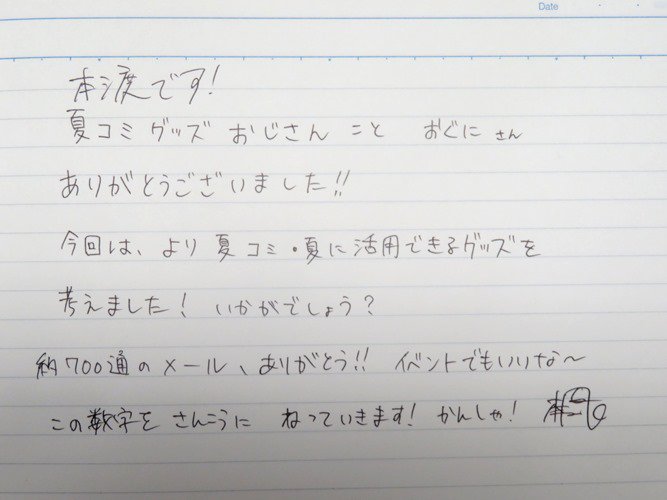 Date
本渡です!
夏コミグッズおじさん こと おぐに さん
ありがとうございました!!
今回は、より夏コミ・夏に活用できるグッズを
考えました! いかがでしょう?
約700通のメール、ありがとう!! イベントでもいいな〜
この数字を さんこうに ねっていきます! かんしゃ!